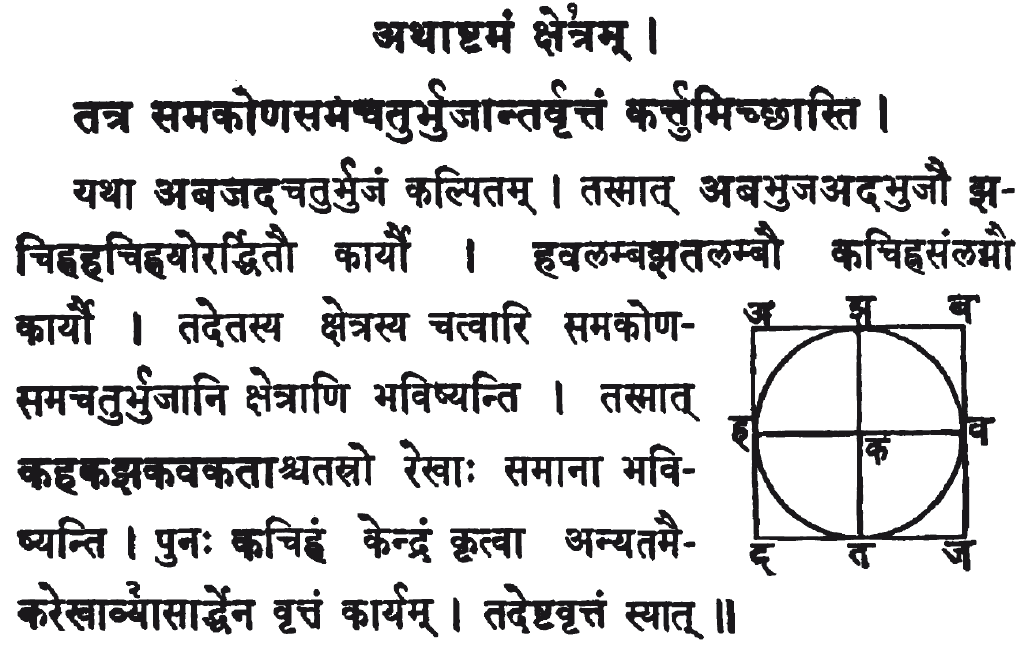 अथाष्टमं क्षेत्रम्१ ।
तत्र समकोणसमचतुर्भुजान्तर्वृत्तं कर्त्तुमिच्छास्ति ।
यथा अबजदचतुर्भुजं कल्पितम् । तस्मात् अबभुजअदभुजौ झ-
चिह्नहचिह्नयोरर्द्धितौ कार्यौ । हवलम्बझतलम्बौ कचिह्नसंलग्नौ
कार्यौ । तदेतस्य क्षेत्रस्य चत्वारि समकोण-
समचतुर्भुजानि क्षेत्राणि भविष्यन्ति । तस्मात्
कहकझकवकताश्चतस्रो रेखाः समाना भवि-
ष्यन्ति । पुनः कचिह्नं केन्द्रं कृत्वा अन्यतमै-
करेखाव्यासार्द्धेन२ वृत्तं कार्यम् । तदेष्टवृत्तं स्यात् ॥
अ झ ब
ह व
क
द त ज